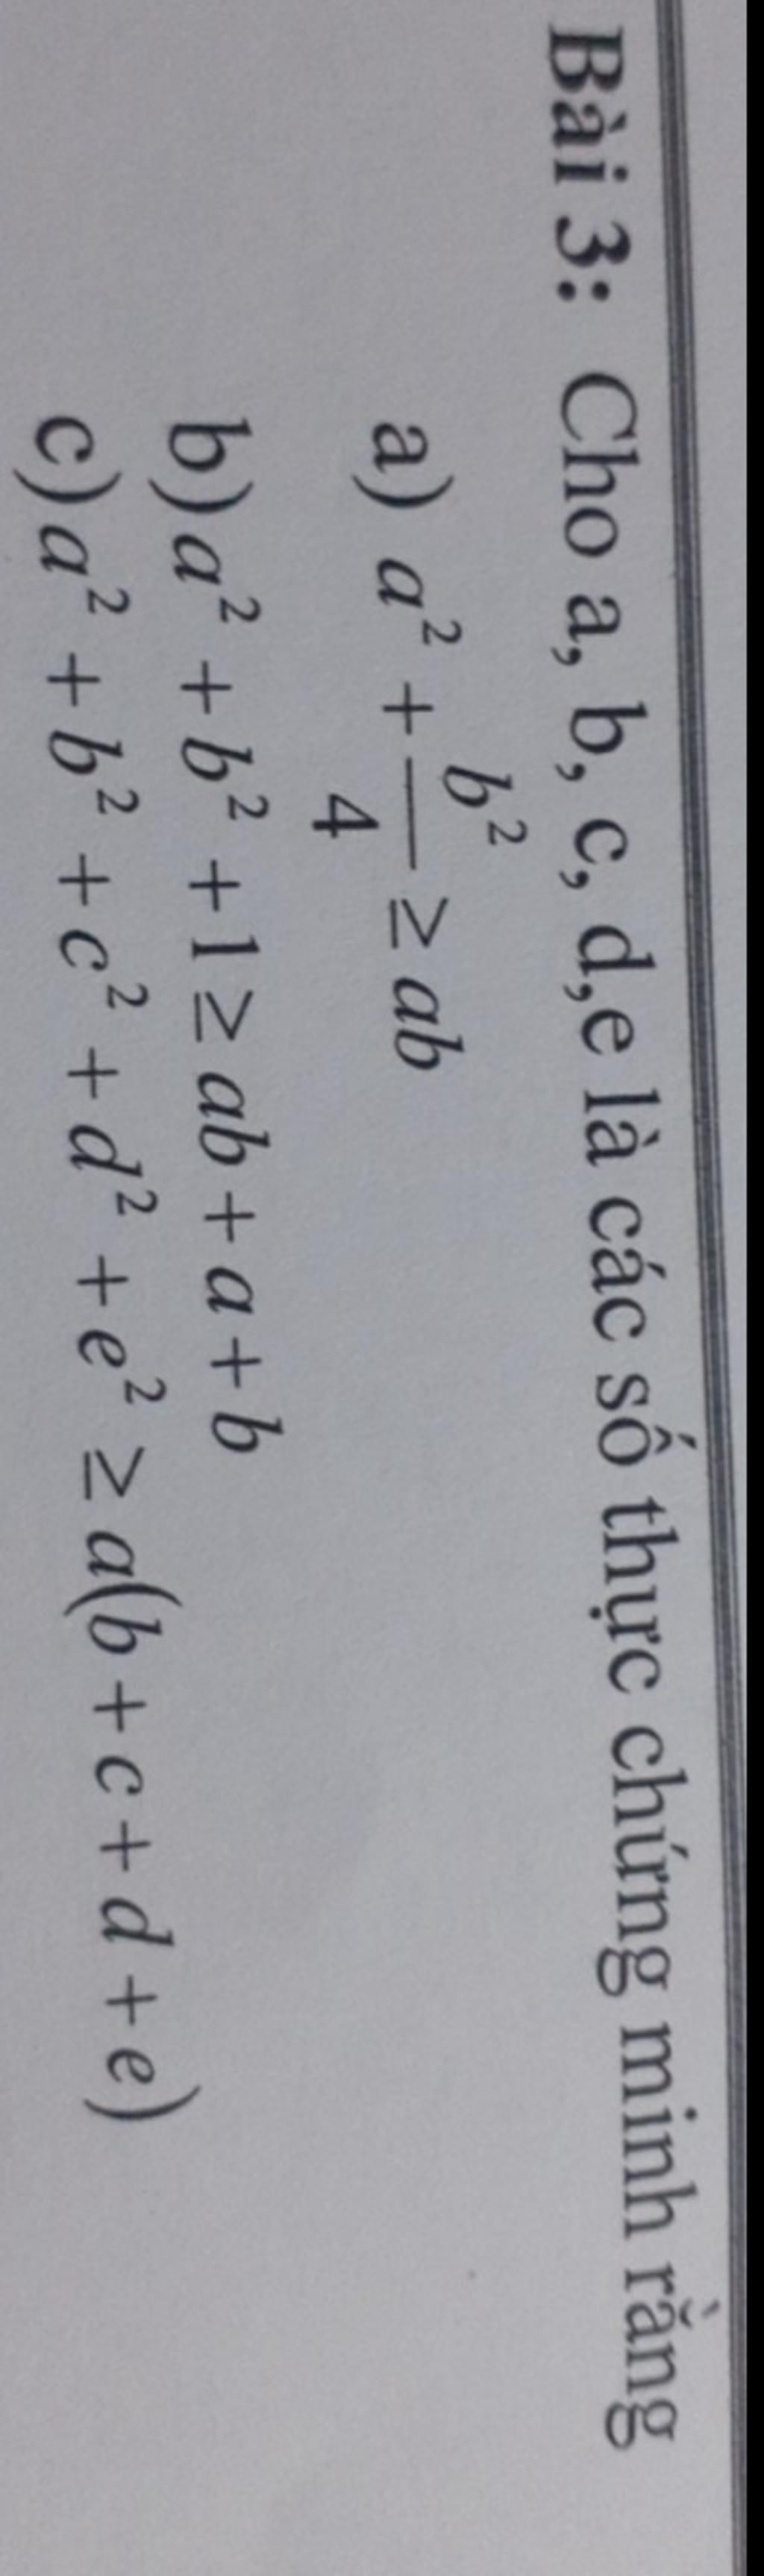 Bài 3: Cho a, b, c, d,e là các số thực chứng minh rằng
a) a² + b²/4 ≥ ab
b) a² + b² +1 ≥ ab + a + b
c) a² + b² + c² + d² + e² ≥ a(b + c + d + e)